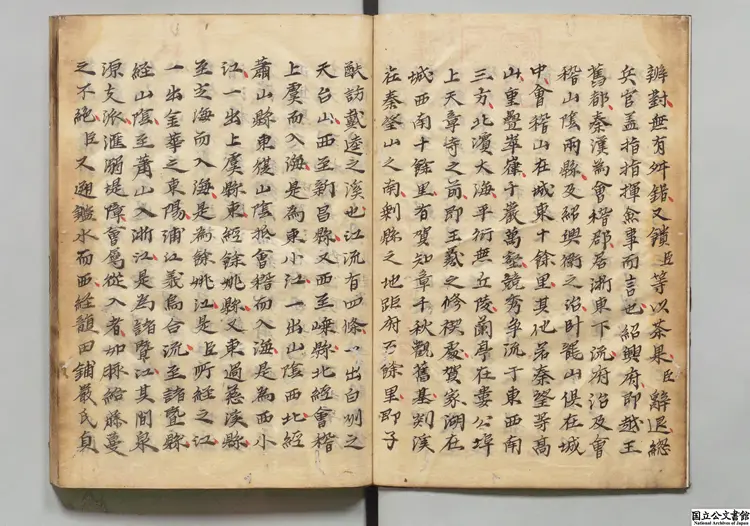 辨對無有舛錯又饋臣等以茶果臣辭退總
兵官盖指指揮僉事而言也紹興府即越王
舊都秦漢為會稽郡居浙東下流府治及會
稽山陰兩縣及紹興衛之治卧龍山俱在城
中會稽山在城東十餘里其他若秦望等高
山重疊崒嵂千巖萬壑競秀爭流于東西南
三方北濱大海平衍無丘陵蘭亭在婁公埠
上天章寺之前即王羲之修禊處賀家湖在
城西南十餘里有賀知章千秋觀舊基剡溪
在秦望山之南剩縣之地距府百餘里即子
猷訪戴逵之溪也江流有四條一出台州之
天台山西至新昌縣又西至嵊縣北經會稽
上虞而入海是為東小江一出山陰西北經
蕭山縣東復山陰抵會稽而入海是為西小
江一出上虞縣東經餘姚縣又東過慈溪縣
至定海而入海是為餘姚江是臣所經之江
一出金華之東陽浦江義烏合流至諸暨縣
經山陰至蕭山入浙江是為諸暨江其間泉
源支派滙溺堤障會屬從入者如脉絡藤蔓
之不絕臣又遡鑑水而西經韻田鋪嚴氏貞
國立公文書館
National Archives of Japan